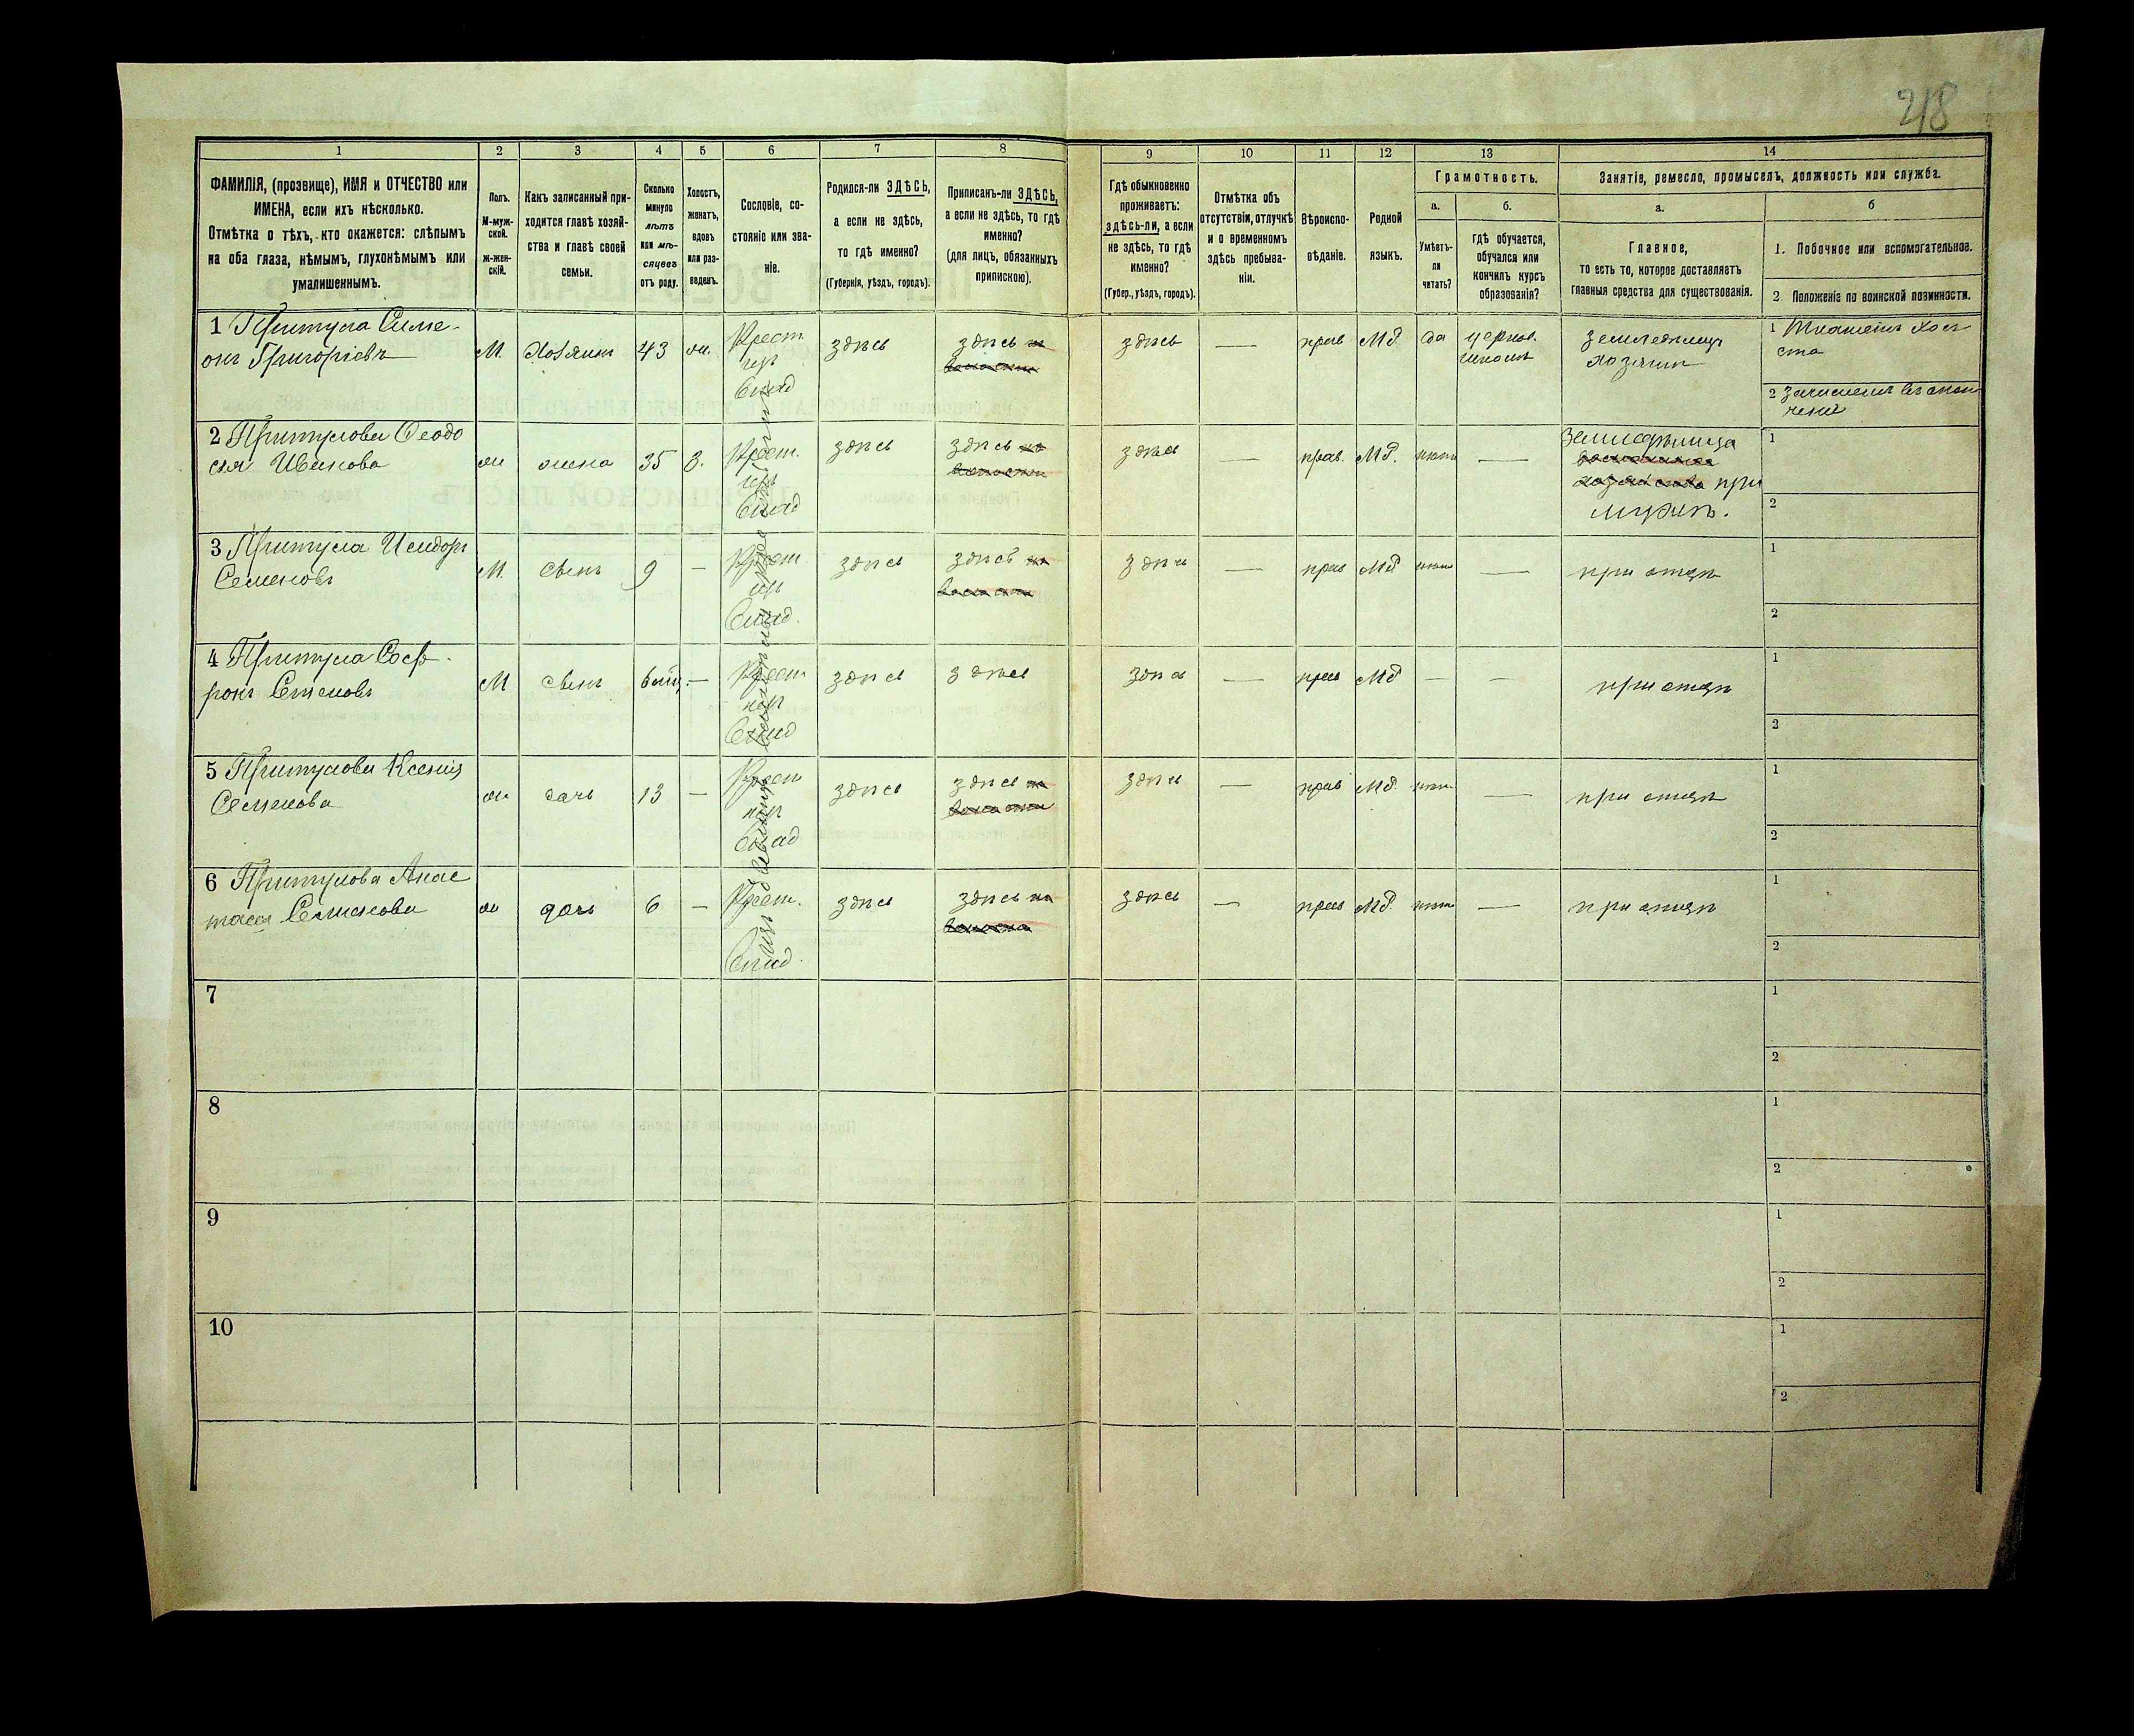 218
1 2 3 4 5 6 7 8 9 10 11 12 13 14
ФАМИЛІЯ, (прозвище), ИМЯ и ОТЧЕСТВО или
ИМЕНА, если ихъ нѣсколько.
Отмѣтка о тѣхъ, кто окажется: слѣпымъ
на оба глаза, нѣмымъ, глухонѣмымъ или
умалишеннымъ.
Полъ.
М-муж-
ской.
ж-жен-
скій.
Какъ записанный при-
ходится главѣ хозяй-
ства и главѣ своей
семьи.
Сколько
минуло
лѣтъ
или мѣ-
сяцевъ
отъ роду.
Холостъ,
женатъ,
вдовъ
или раз-
веденъ.
Сословіе, со-
стояніе или зва-
ніе.
Родился-ли ЗДѢСЬ,
а если не здѣсь,
то гдѣ именно?
(Губернія, уѣздъ, городъ).
Приписанъ-ли ЗДѢСЬ,
а если не здѣсь, то гдѣ
именно?
(для лицъ, обязанныхъ
припискою).
Гдѣ обыкновенно
проживаетъ:
здѣсь-ли, а если
не здѣсь, то гдѣ
именно?
(Губер., уѣздъ, городъ).
Отмѣтка объ
отсутствіи, отлучкѣ
и о временномъ
здѣсь пребыва-
ніи.
Вѣроиспо-
вѣданіе.
Родной
языкъ.
Грамотность.
а.
Умѣетъ-
ли
читать?
б.
Гдѣ обучается,
обучался или
кончилъ курсъ
образованія?
Занятіе, ремесло, промыселъ, должность или служба.
а.
Главное,
то есть то, которое доставляетъ
главныя средства для существованія.
б
1. Побочное или вспомогательное.
2 Положеніе по воинской повинности.
1 Притула Симе-
онъ Григоріевъ
М. Хозяинъ 43 ж. Крест. здѣсь здѣсь здѣсь — прав М.
да церков.
школѣ
земледѣлецъ
хозяинъ
1
2
2 Притулова Феодо
сія Иванова
ж жена 35 з. Крест. здѣсь здѣсь здѣсь — прав. М. нѣтъ —
Земледѣлица
при
мужѣ.
1
2
3 Притула Исидоръ
Семеновъ
М. сынъ 9 — Крест. здѣсь здѣсь здѣсь — прав М. нѣтъ — при отцѣ
1
2
4 Притула Соф-
ронъ Семеновъ
М сынъ — Крест здѣсь здѣсь здѣсь — прав М — — при отцѣ
1
2
5 Притулова Ксенія
Семенова
ж дочь 13 — Крест здѣсь здѣсь здѣсь — прав М. нѣтъ — при отцѣ
1
2
6 Притулова Анас
тасія Семенова
ж дочь 6 — Крест. здѣсь здѣсь здѣсь — прав М. нѣтъ — при отцѣ
1
2
7
1
2
8
1
2
9
1
2
10
1
2